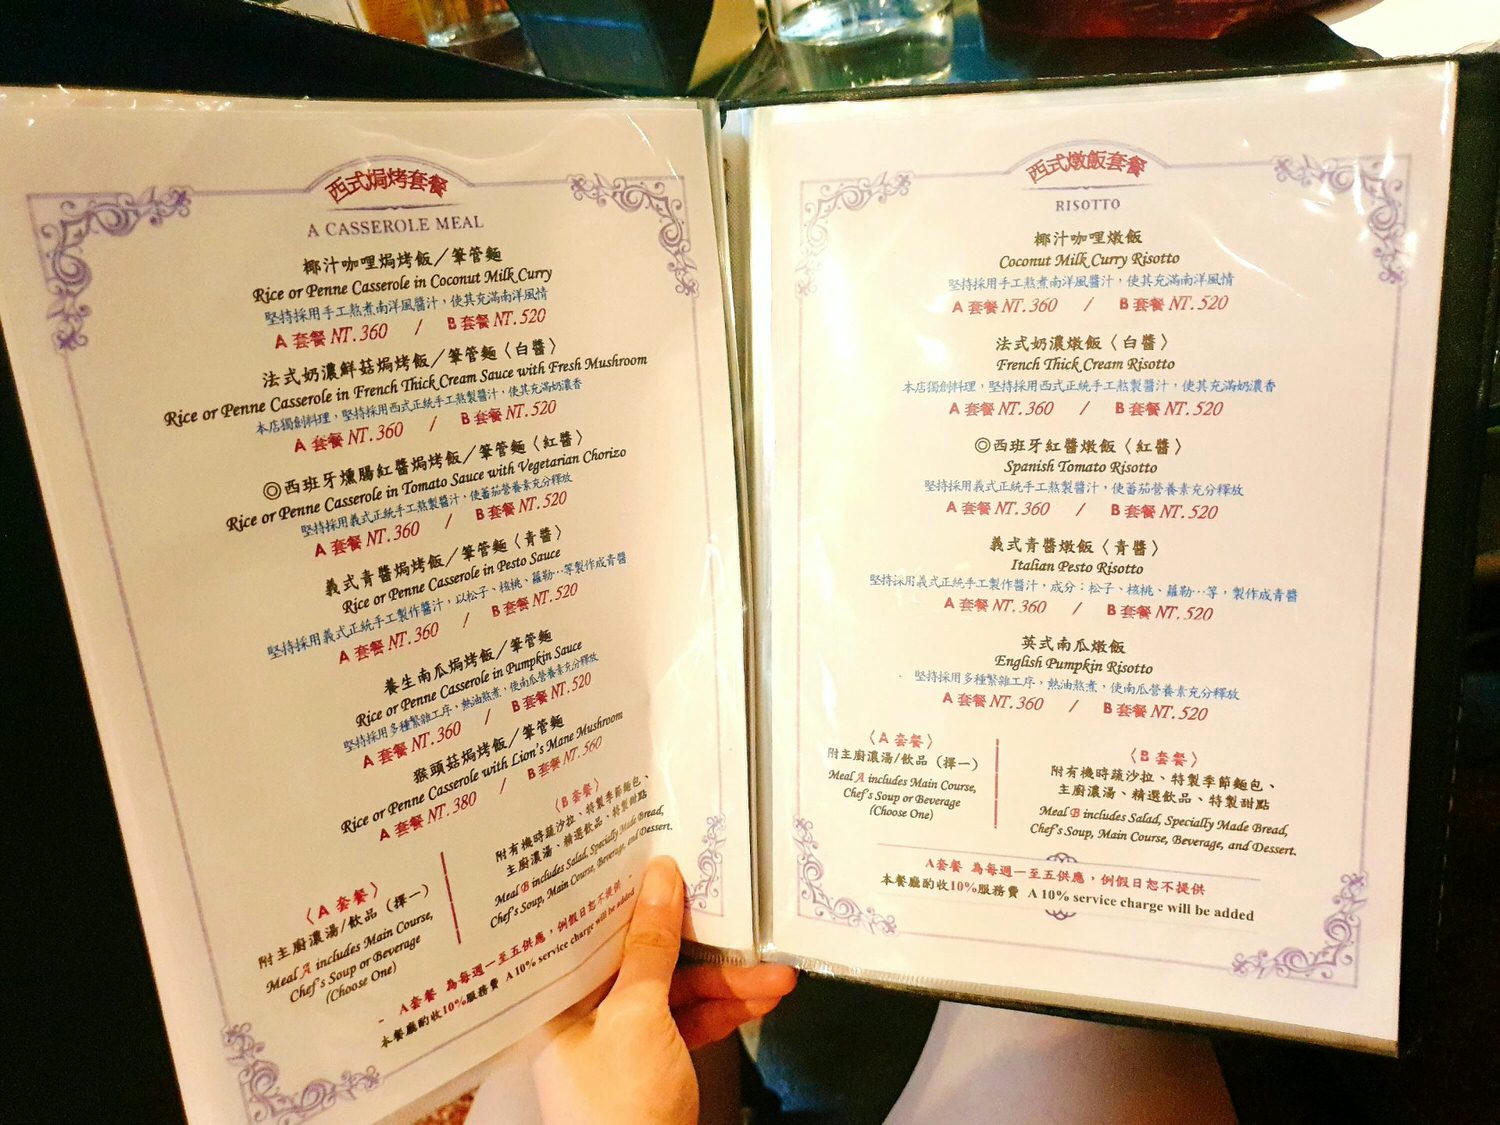 西式焗烤套餐
A CASSEROLE MEAL
椰汁咖哩焗烤飯／筆管麵
Rice or Penne Casserole in Coconut Milk Curry
堅持採用手工熬煮南洋風醬汁，使其充滿南洋風情
A 套餐 NT.360 / B 套餐 NT.520
法式奶濃鮮菇焗烤飯／筆管麵〈白醬〉
Rice or Penne Casserole in French Thick Cream Sauce with Fresh Mushroom
本店獨創料理，堅持採用西式正統手工熬製醬汁，使其充滿奶濃香
A 套餐 NT.360 / B 套餐 NT.520
◎西班牙燻腸紅醬焗烤飯／筆管麵〈紅醬〉
Rice or Penne Casserole in Tomato Sauce with Vegetarian Chorizo
堅持採用義式正統手工熬製醬汁，使蕃茄營養素充分釋放
A 套餐 NT.360 / B 套餐 NT.520
義式青醬焗烤飯／筆管麵〈青醬〉
Rice or Penne Casserole in Pesto Sauce
堅持採用義式正統手工製作醬汁，以松子、核桃、蘿勒…等製作成青醬
A 套餐 NT.360 / B 套餐 NT.520
養生南瓜焗烤飯／筆管麵
Rice or Penne Casserole in Pumpkin Sauce
堅持採用多種繁雜工序，熱油熬煮，使南瓜營養素充分釋放
A 套餐 NT.360 / B 套餐 NT.520
猴頭菇焗烤飯／筆管麵
Rice or Penne Casserole with Lion's Mane Mushroom
A 套餐 NT.380 / B 套餐 NT.560
〈A 套餐〉
附主廚濃湯/飲品（擇一）
Meal A includes Main Course,
Chef's Soup or Beverage
(Choose One)
〈B 套餐〉
附有機時蔬沙拉、特製季節麵包、
主廚濃湯、精選飲品、特製甜點
Meal B includes Salad, Specially Made Bread,
Chef's Soup, Main Course, Beverage, and Dessert.
A套餐 為每週一至五供應，例假日恕不提供
本餐廳酌收10%服務費 A 10% service charge will be added
西式燉飯套餐
RISOTTO
椰汁咖哩燉飯
Coconut Milk Curry Risotto
堅持採用手工熬煮南洋風醬汁，使其充滿南洋風情
A 套餐 NT.360 / B 套餐 NT.520
法式奶濃燉飯〈白醬〉
French Thick Cream Risotto
本店獨創料理，堅持採用西式正統手工熬製醬汁，使其充滿奶濃香
A 套餐 NT.360 / B 套餐 NT.520
◎西班牙紅醬燉飯〈紅醬〉
Spanish Tomato Risotto
堅持採用義式正統手工熬製醬汁，使蕃茄營養素充分釋放
A 套餐 NT.360 / B 套餐 NT.520
義式青醬燉飯〈青醬〉
Italian Pesto Risotto
堅持採用義式正統手工製作醬汁，成分：松子、核桃、蘿勒…等，製作成青醬
A 套餐 NT.360 / B 套餐 NT.520
英式南瓜燉飯
English Pumpkin Risotto
堅持採用多種繁雜工序，熱油熬煮，使南瓜營養素充分釋放
A 套餐 NT.360 / B 套餐 NT.520
〈A 套餐〉
附主廚濃湯/飲品（擇一）
Meal A includes Main Course,
Chef's Soup or Beverage
(Choose One)
〈B 套餐〉
附有機時蔬沙拉、特製季節麵包、
主廚濃湯、精選飲品、特製甜點
Meal B includes Salad, Specially Made Bread,
Chef's Soup, Main Course, Beverage, and Dessert.
A套餐 為每週一至五供應，例假日恕不提供
本餐廳酌收10%服務費 A 10% service charge will be added